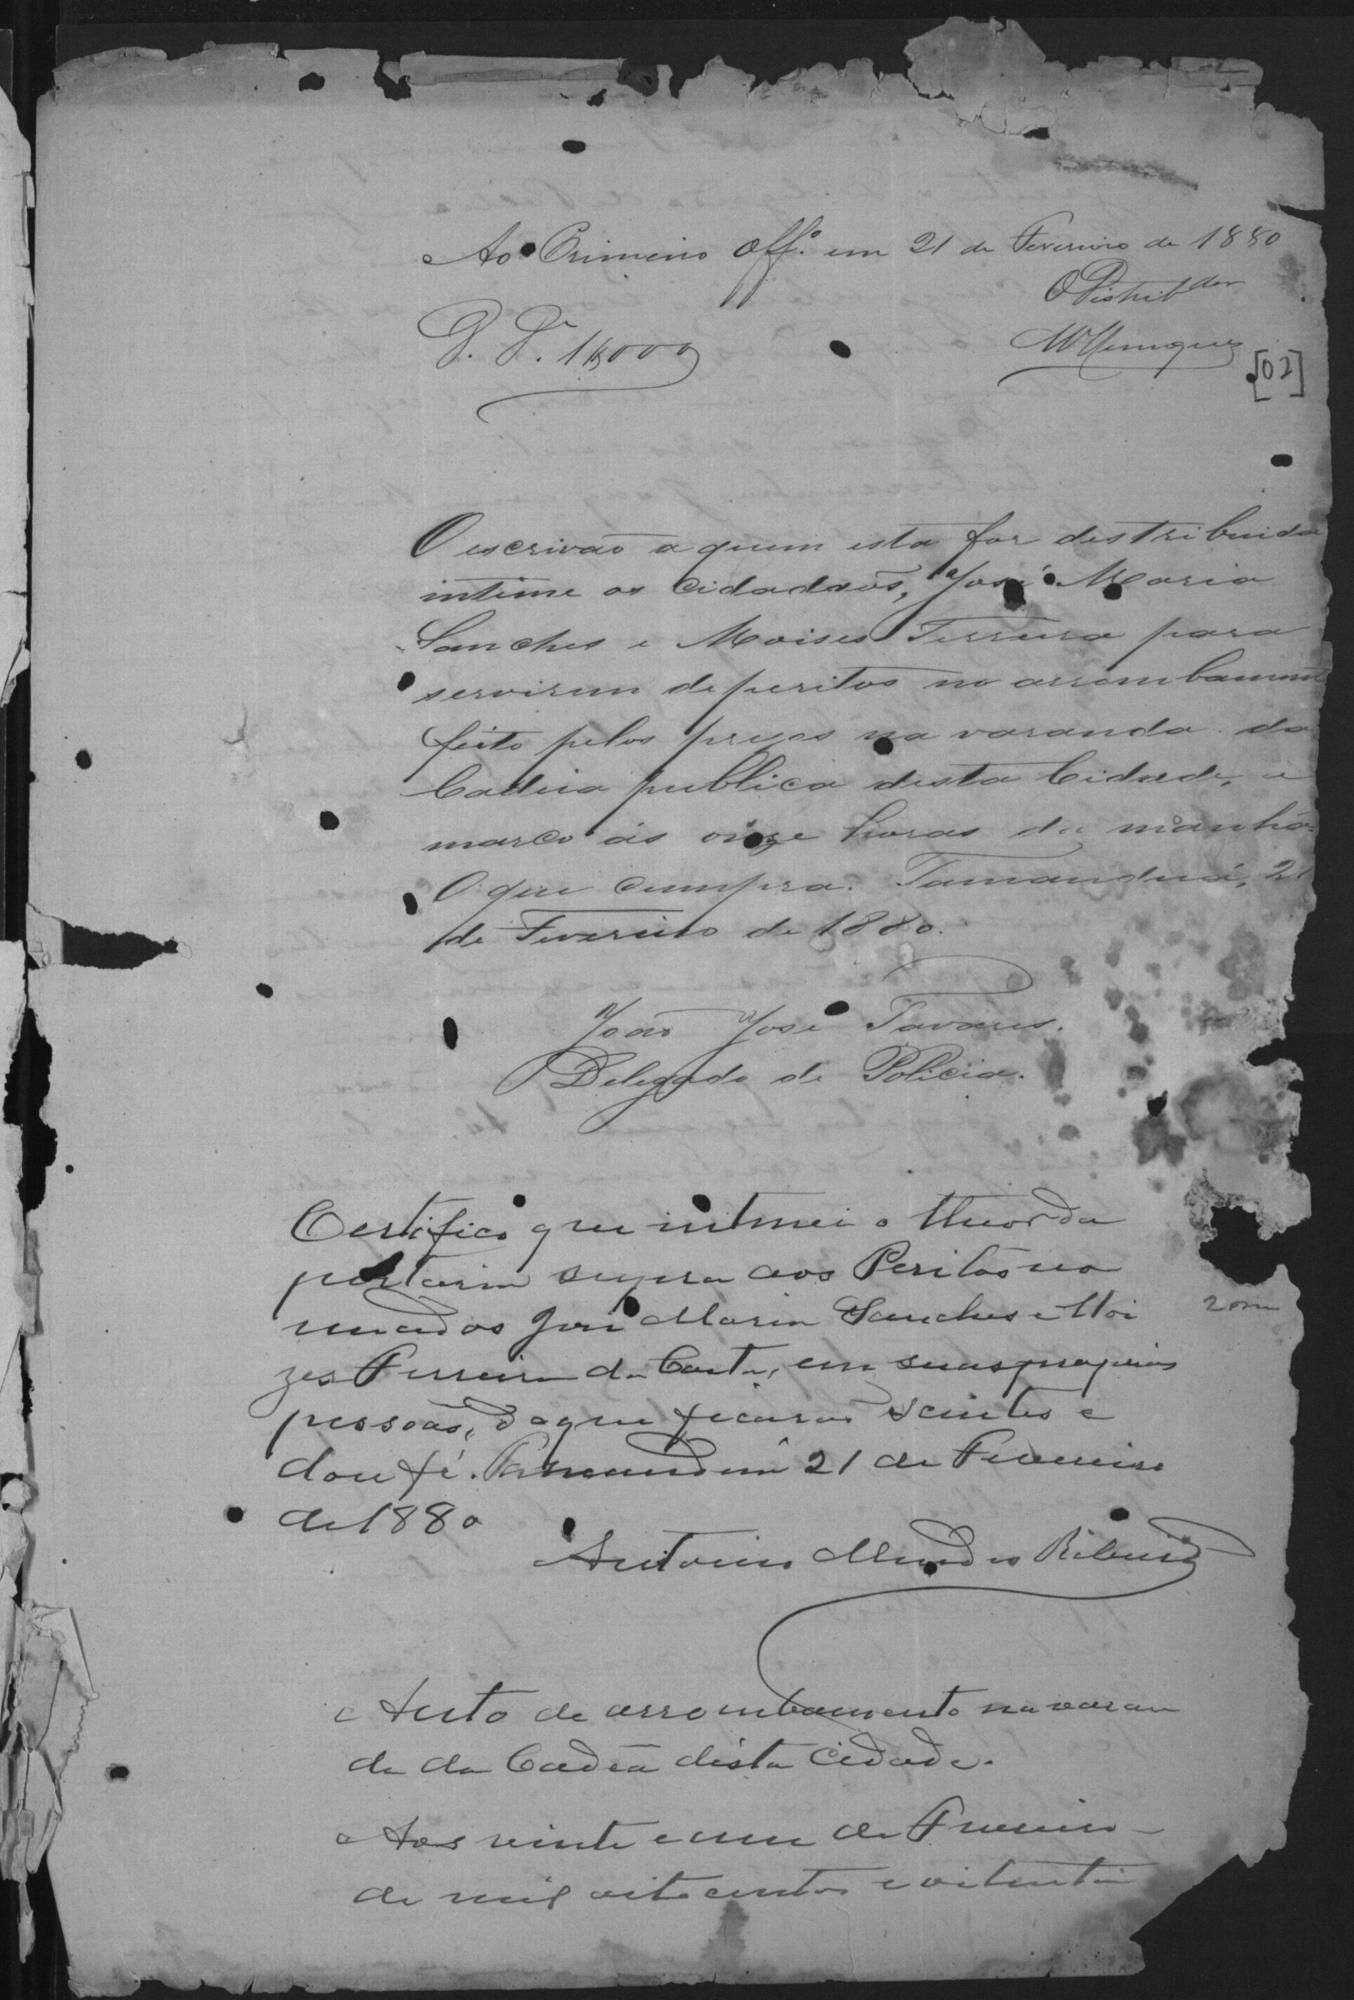 Ao Primeiro Off.º em 21 de Fevereiro de 1880
O Distribdor
D. Dr. 1$000
MHenriques
[02]
O escrivão a quem esta for destribuida
intime os Cidadãos, José Maria
Sanches e Moises Ferreira para
servirem de peritos no arrombament
feito pelos prezos na varanda da
Cadeia publica desta Cidade, e
marco ás onze horas da manhã
O que cumpra. Tamanduá, 21
de Fevereiro de 1880.
João José Tavares.
Delegado de Policia.
Certifico que intimei o theor da
portaria supra aos Peritos no
meados José Maria Sanches e Moi
zes Ferreira da Costa, em suas proprias
pessoas, do que ficarão scientes e
dou fé. Tamanduá 21 de Fevereiro
de 1880
Antonio Mendes Ribeiro
Auto de arrombamento na varan
da da Cadêa désta Cidade.
Aos vinte e um de Fevereiro
de mil oito centos e oitenta